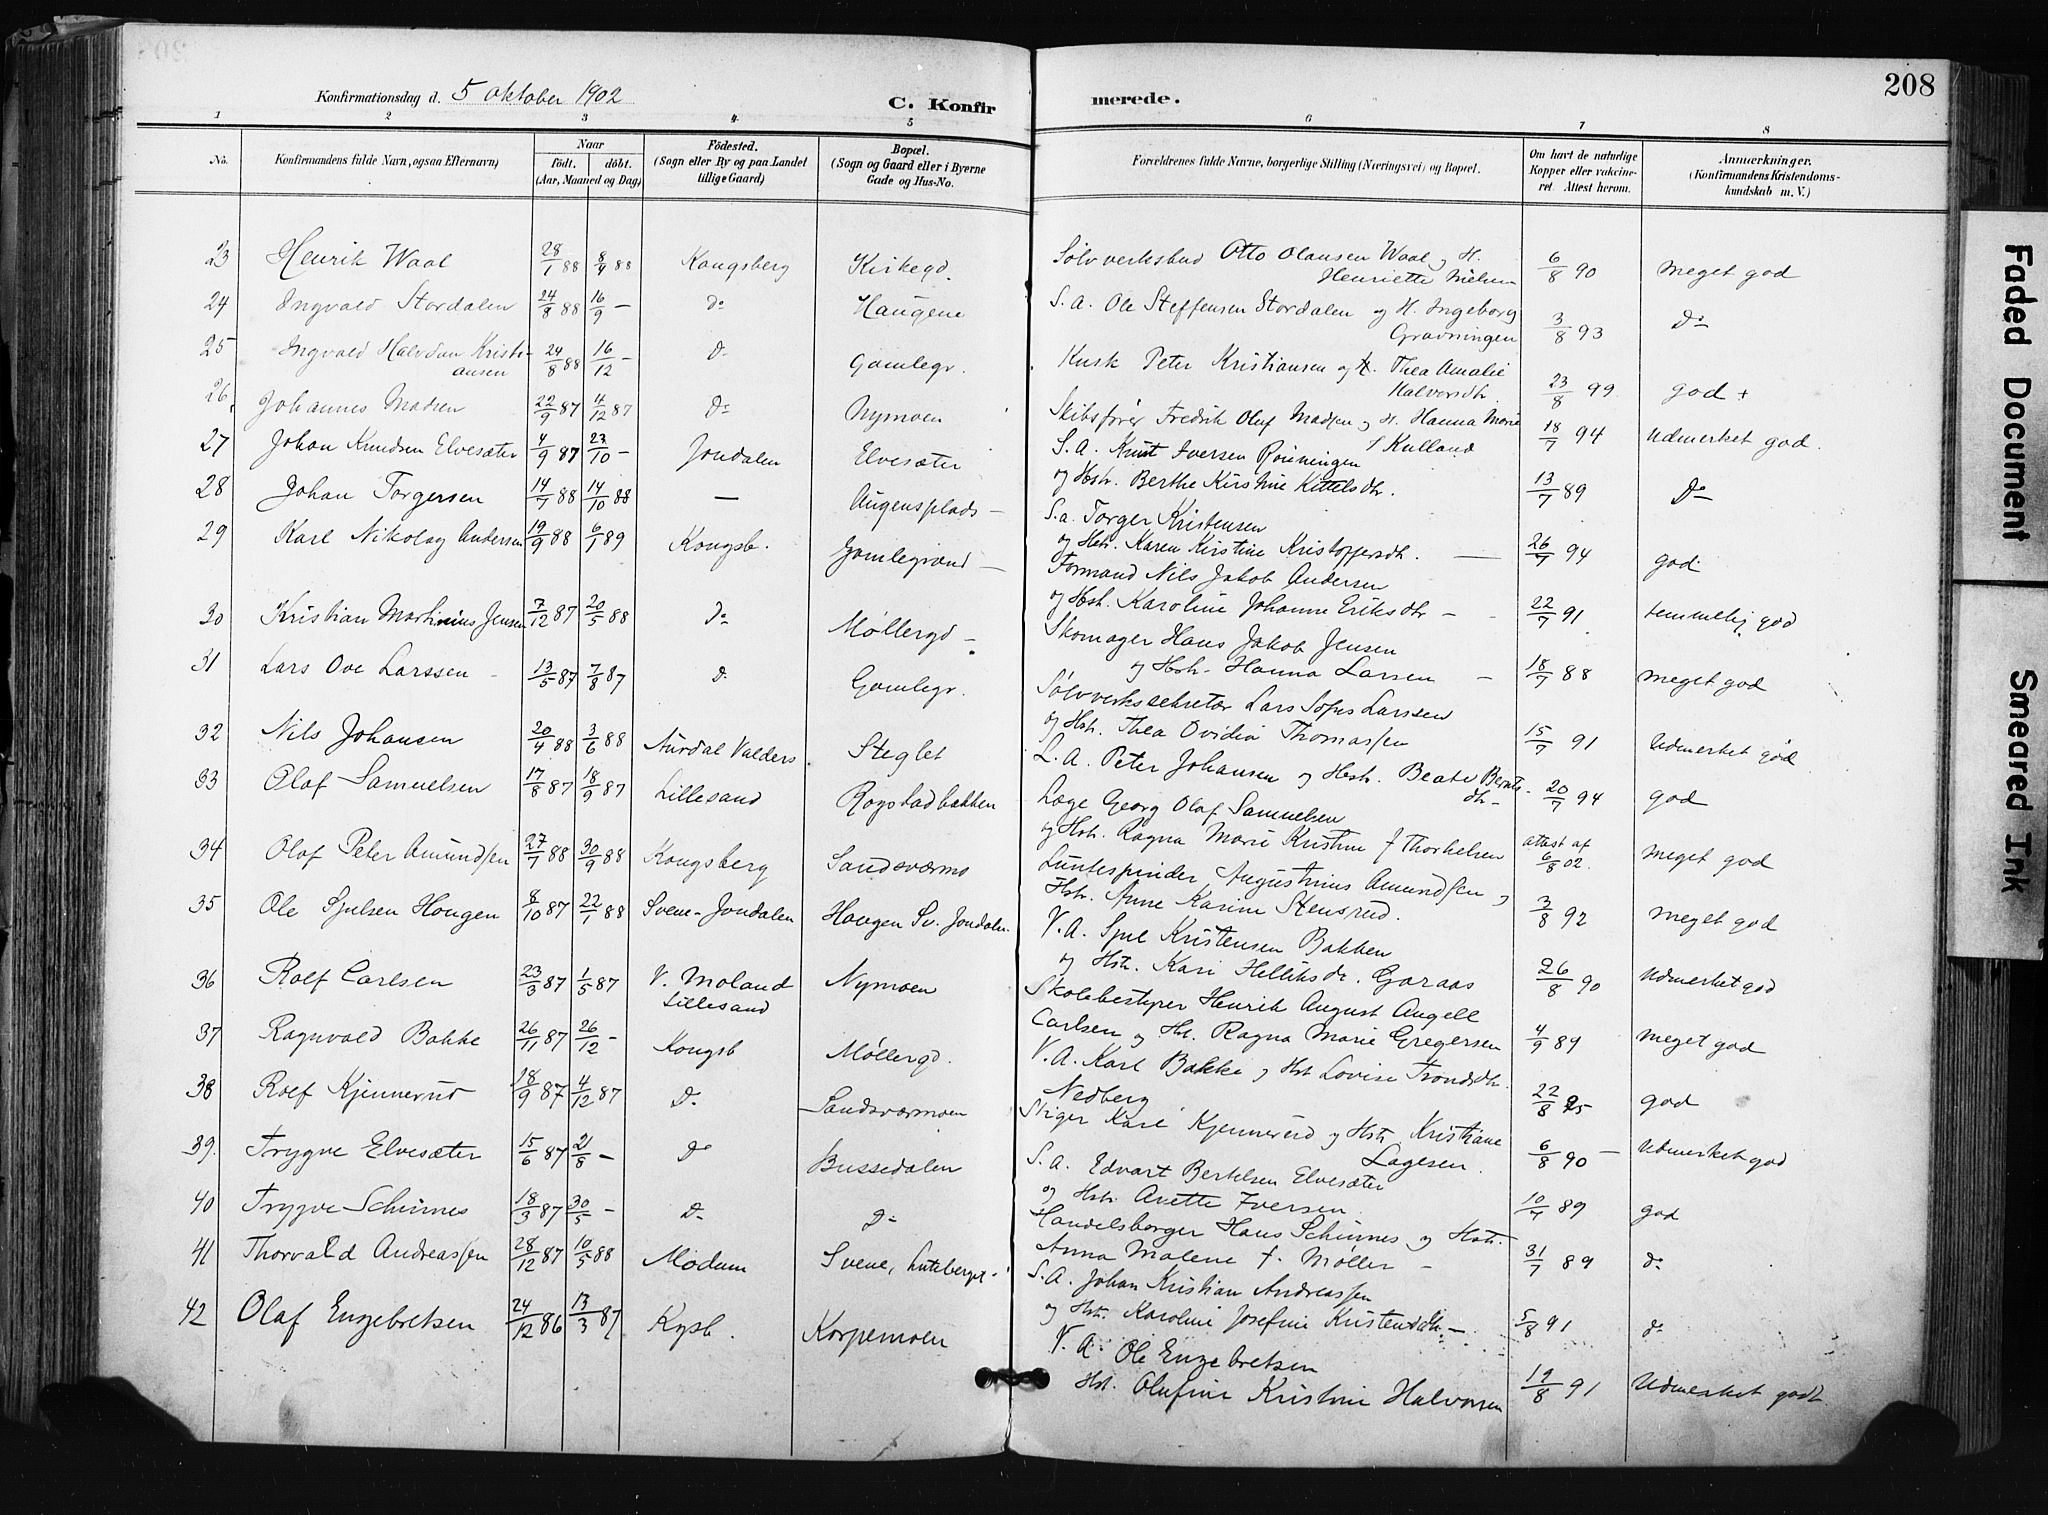 208
Konfirmationsdag d. 5 oktober 1902
C. Konfir merede.
1 2 3 4 5 6 7 8
No. Konfirmandens fulde Navn, ogsaa Efternavn) Naar Födt. döbt. (Aar, Maaned og Dag) Födested. (Sogn eller By og paa Landet tillige Gaard) Bopæl. (Sogn og Gaard eller i Byerne Gade og Hus-No. Forældrenes fulde Navne, borgerlige Stilling (Næringsvei) og Bopæl. Om havt de naturlige Kopper eller vakcineret. Attest herom. Anmærkninger. (Konfirmandens Kristendomskundskab m. V.)
23 Henrik Waal 28/1 88 8/4 88 Kongsberg Kirkegd. Sølvverksbud Otto Olausen Waal og H. Henriette Nielsen 6/8 90 meget god
24 Ingvald Stordalen 24/8 88 16/9 – Do Haugene S. A. Ole Steffensen Stordalen og H. Ingeborg Gravningen 3/8 93 Do
25 Ingvald Halvdan Kristiansen 24/8 88 16/12 – Do Gamlegr. Kusk Peter Kristiansen og H. Thea Amalie Halversdtr. 23/8 99 god +
26. Johannes Madsen 22/9 87 4/12 87 Do Nymoen Skibsfører Fredrik Oluf Madsen og H. Hanna Marie f Kulland 18/7 94 Udmerket god.
27 Johan Knudsen Elvesæter 4/9 87 23/10 – Jondalen Elvesæter S. A. Knut Iversen Rouningen og Hstr. Berthe Kirstine Kittelsdtr. 13/7 89 Do
28 Johan Torgersen 14/7 88 14/10 88 — Augensplads – S. a. Torger Kristensen og Hstr. Karen Kirstine Kristoffersdtr. — 26/7 94 god
29 Karl Nikolay Andersen 19/9 88 6/1 89 Kongsb. Gamlegrænd – Formand Nils Jakob Andersen og Hst. Karoline Johanne Eriksdtr – 22/7 91 temmelig god
30 Kristian Martinius Jensen 7/12 87 20/5 88 Do Møllergd – Skomager Hans Jakob Jensen og Hstr. Hanna Larsen – 18/7 88 meget god
31 Lars Ove Larssen 13/5 87 7/8 87 Do Gamlegr. Sølvverkssekretær Lars Sofus Larssen og Hstr. Thea Ovidia Thomassen 15/7 91 Udmerket god
32 Nils Johansen 20/4 88 3/6 88 Aurdal Valders. Steglet L. A. Peter Johansen og Hustr. Beate Berntsdtr – 20/7 94 god
33 Olaf Samuelsen 17/8 87 18/9 87 Lillesand Rogstadbakken Læge Georg Olaf Samuelsen og Hstr. Ragna Marie Kristine f Thorkelsen attest af 6/8 02. meget god
34 Olaf Peter Amundsen 27/7 88 30/9 88 Kongsberg Sandsværmo Luntespinder Augustinius Amundsen og Hstr. Anne Karine Stensrud. 3/8 92 meget god
35 Ole Sjulsen Hougen 8/10 87 22/1 88 Svene-Jondalen Hougen Sv. Jondalen. V. A. Sjul Kristensen Bakken og Hstr. Kari Helliksdr. Garaas 26/8 90 Udmerket god
36 Rolf Carlsen 23/3 87 1/5 87 V. Moland Lillesand Nymoen Skolebestyrer Henrik August Angell Carlsen og Hst. Ragna Marie Gregersen 4/9 89 meget god
37 Ragnvald Bakke 26/11 87 26/12 – Kongsb Møllergd. V. A. Karl Bakke og Hst Lovise Trondsdtr. Nedberg 22/8 95 god
38 Rolf Kjennerud 18/9 87 4/12 87 Do Sandsværmoen Stiger Karl Kjennerud og Hstr. Kristiane Lagesen. 6/8 90 – Udmerket god
39. Trygve Elvesæter 15/6 87 21/8 – Do Bussedalen S. A. Edvart Bertelsen Elvesæter og Hstr. Anette Iversen. 10/7 89 god
40 Trygve Schinnes 18/3 87 30/5 – Do Do Handelsborger Hans Schinnes og Hstr. Anna Malene f. Møller – 31/7 89 do
41 Thorvald Andreassen 28/12 87 10/5 88 Modum Svene, Luteberget – S. A. Johan Kristian Andreassen og Hstr. Karoline Josefine Kristensdtr. – 5/8 91 do
42 Olaf Engebretsen 24/12 86 13/3 87 Kgsb. Korpemoen V. A. Ole Engebretsen Hst. Olufine Kristine Halvorsen 19/8 91 Udmerket godt
Faded Document
Smeared Ink